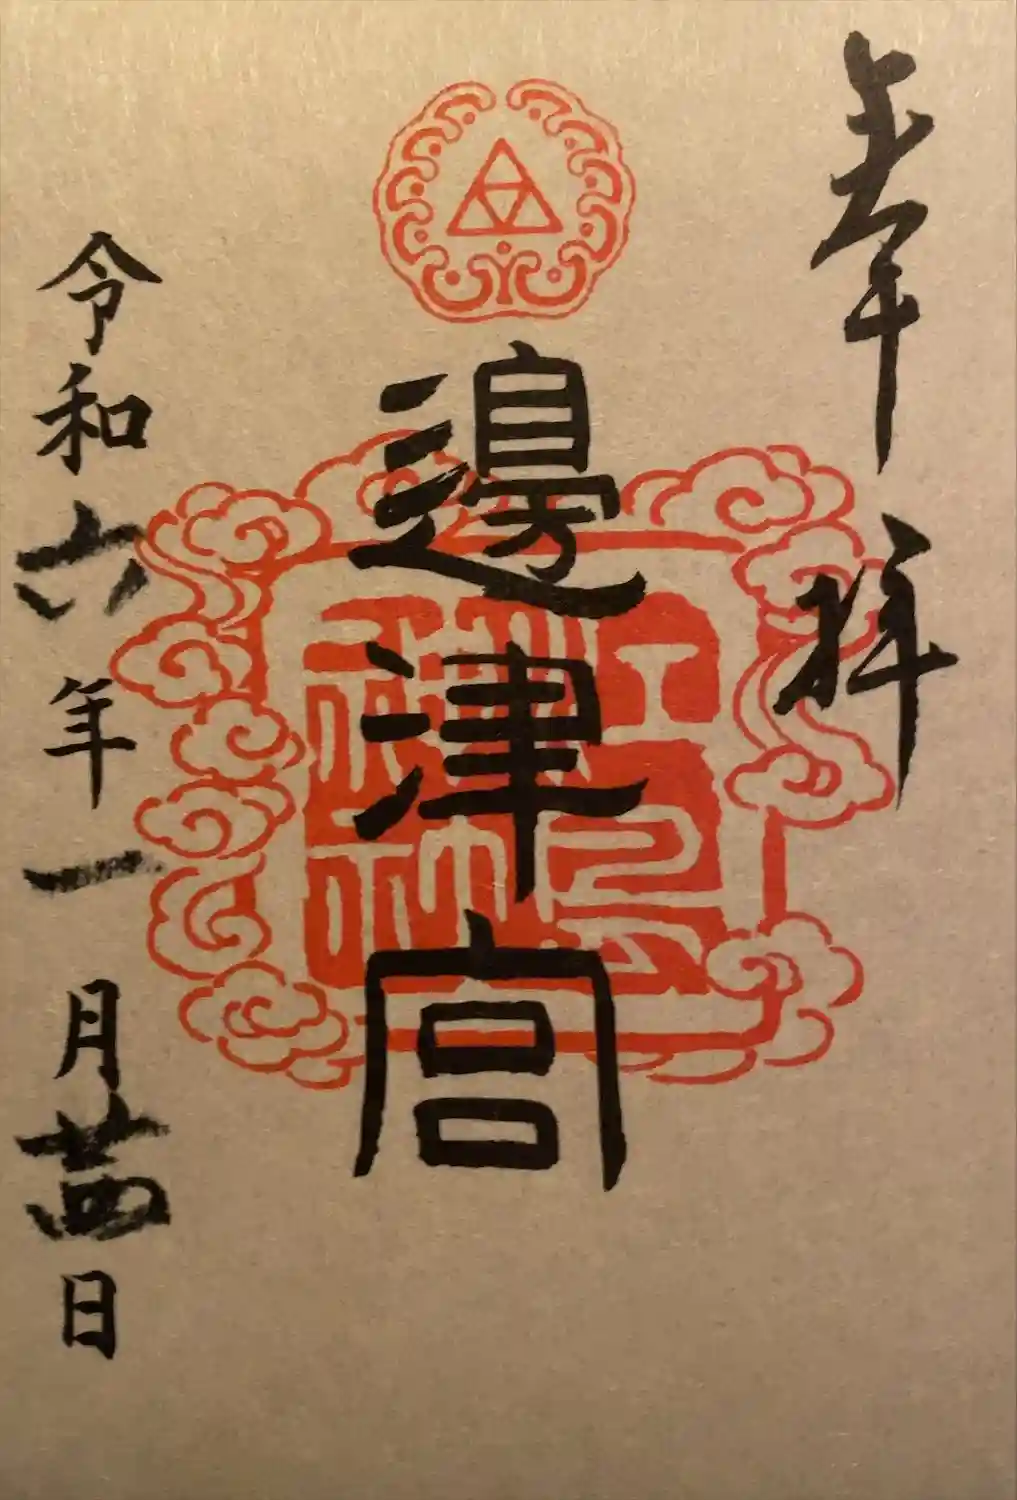 奉拝
邊津宮
令和六年一月廿四日